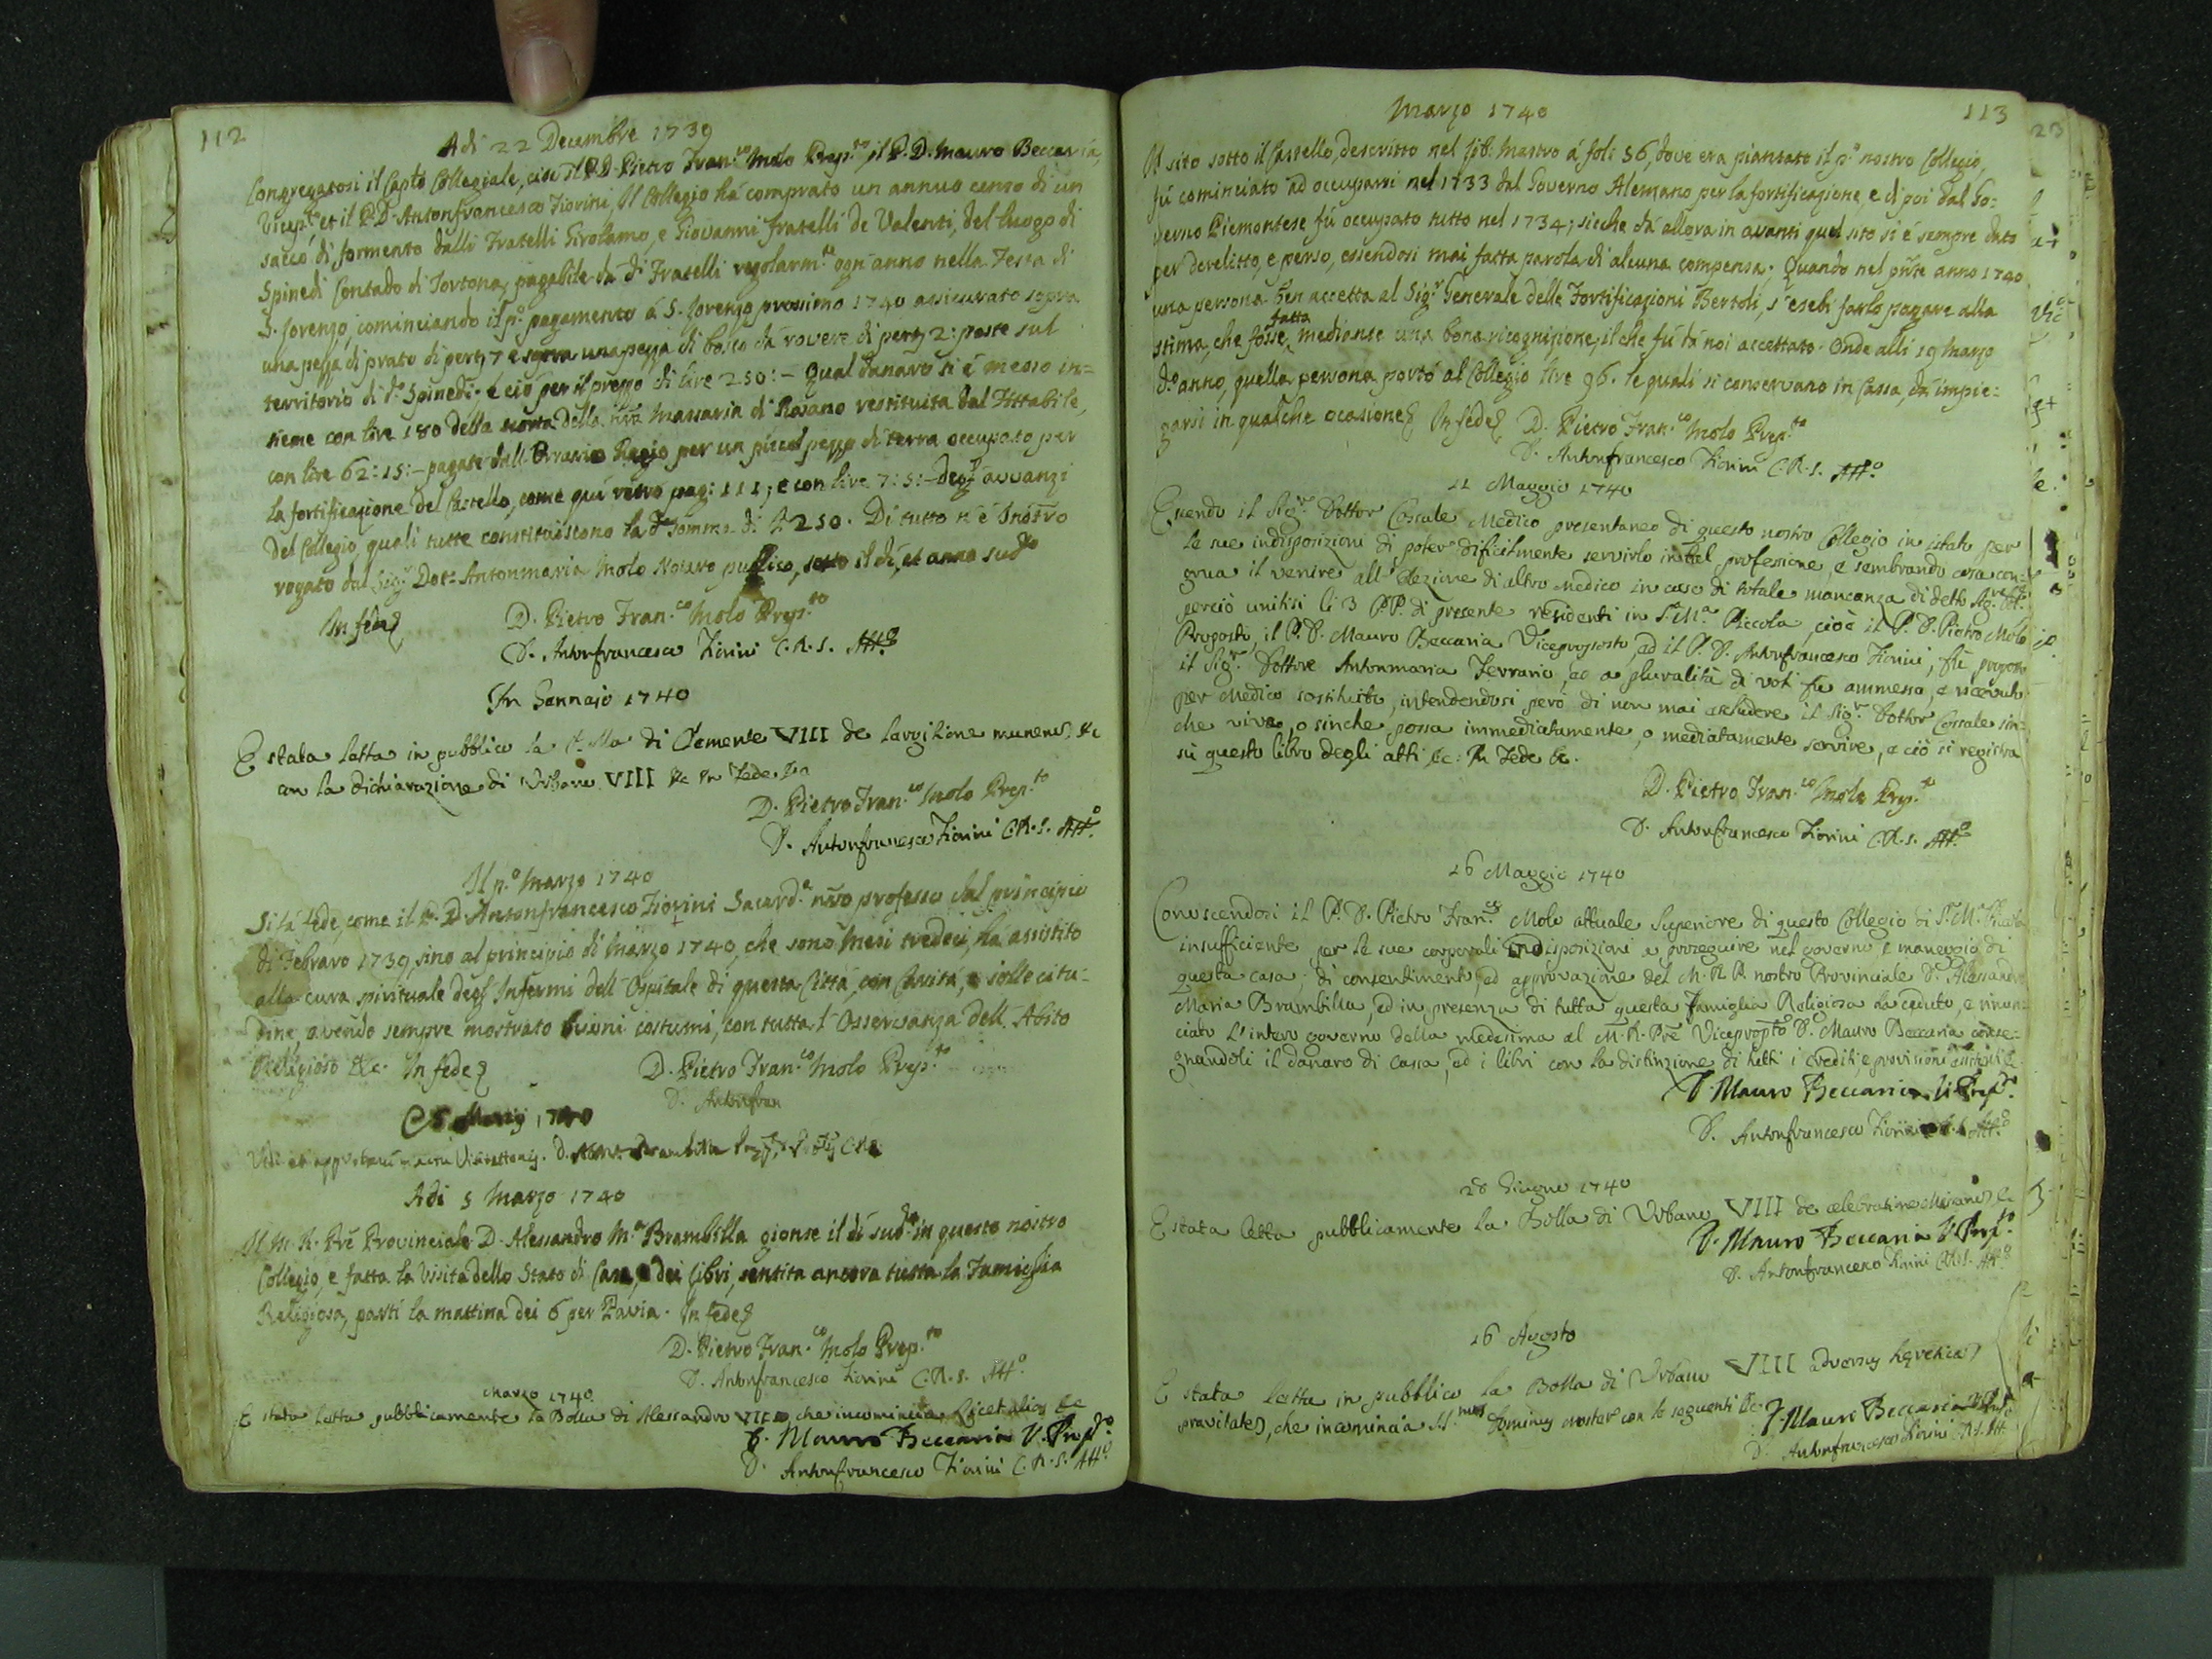 112
Adi 22 Decembre 1739
Congregatosi il Caplo Collegiale, cioè il P.D. Pietro Fran.co Molo Prep.to, il P. D. Mauro Beccaria,
Vicep.to et il P.D. Antonfrancesco Fiorini, Il Collegio hà comprato un annuo censo di un
sacco di formento dalli Fratelli Girolamo, e Giovanni fratelli de Valenti, del luogo di
Spinedi Contado di Tortona, pagabile da d.i Fratelli regolarm.te ogn'anno nella Festa di
S. Lorenzo, cominciando il p.o pagamento à S. Lorenzo prossimo 1740 assicurato sopra
una pezza di prato di pert. 7 e sopra una pezza di bosco da rovere di pert. 2: poste sul
territorio di d.o Spinedi. e ciò per il prezzo di lire 250:- Qual danaro si è messo in=
sieme con lire 180 della scorta della nra Massaria di Rosano restituita dal Fittabile,
con lire 62:15:- pagate dall'Errario Regio per un picciol pezzo di terra occupato per
la fortificazione del Castello, come quì retro pag: 111; e con lire 7:5:- degl'avvanzi
del Collegio, quali tutte constituiscono la d.a somma di L 250. Di tutto n'è Instro
rogato dal Sig.r Dot.r Antonmaria Molo Notaro publico, sotto il dì, et anno sud.to
In fede
D. Pietro Fran.co Molo Prep.to
D. Antonfrancesco Fiorini C.R.S. Att.o
In Gennajo 1740
E stata letta in pubblico la di Clemente VIII de largitione munerum &c
con la dichiarazione di Urbano VIII &c In Fede
D. Pietro Fran.co Molo Prep.to
D. Antonfrancesco Fiorini C.R.S. Att.o
Il p.o Marzo 1740
Si fà fede, come il P. D. Antonfrancesco Fiorini Sacerd.e nro professo dal principio
di Febraro 1739, sino al principio di Marzo 1740, che sono Mesi tredeci, hà assistito
alla cura spirituale degl'Infermi dell'Ospitale di questa Città, con Carità, e sollecitu=
dine, avendo sempre mostrato buoni costumi, con tutta l'Osservanza dell'Abito
Religioso &c. In fede
D. Pietro Fran.co Molo Prep.to
D. Antonfran
1740
Vidi et approbavi in actu Visitationis. D. Brambilla
Adi 5 Marzo 1740
Il M. R. Pre Provinciale D. Alessandro M.a Brambilla gionse il dì sud.o in questo nostro
Collegio, e fatta la Visita dello Stato di Casa, e dei libri, sentita ancora tutta la Famiglia
Religiosa, partì la mattina dei 6 per Pavia. In fede
D. Pietro Fran.co Molo Prep.to
D. Antonfrancesco Fiorini C.R.S. Att.o
Marzo 1740
E stata letta pubblicamente la Bolla di Alessandro che incomincia Licet alias &c
D. Mauro Beccaria V. Prep.to
D. Antonfrancesco Fiorini C.R.S. Att.o
Marzo 1740
113
Il sito sotto il Castello, descritto nel lib: Mastro à foli 56, dove era piantato il p.o nostro Collegio,
fù cominciato ad occuparsi nel 1733 dal Governo Alemano per la fortificazione, e di poi dal Go=
verno Piemontese fù occupato tutto nel 1734; sicche dà allora in avanti quel sito si è sempre dato
per derelitto, e perso, essendosi mai fatta parola di alcuna compensa. Quando nel pnte anno 1740
una persona ben accetta al Sig.r Generale delle Fortificazioni Bertoli, s'esebì farlo pagare alla
stima, che fosse fatta, mediante una bona ricognizione, il che fù dà noi accettato. Onde alli 19 Marzo
d.o anno, quella persona portò al Collegio lire 96. le quali si conservano in Cassa, da impie=
garsi in qualche ocasione In fede D. Pietro Fran.co Molo Prep.to
D. Antonfrancesco Fiorini C.R.S. Att.o
11 Maggio 1740
Essendo il Sig.r Dottor Cossale Medico presentaneo di questo nostro Collegio in istato per
le sue indisposizioni di poter dificilmente servirlo in tal professione, e sembrando cosa con=
grua il venire all'Elezione di altro Medico in caso di totale mancanza di detto Sig.r Dot.r
perciò unitisi li 3 PP. di presente residenti in S.ta M.a Piccola, cioè il P. D. Pietro Molo
Proposto, il P. D. Mauro Beccaria Viceproposto, ed il P. D. Antonfrancesco Fiorini, fù proposto
il Sig.r Dottore Antonmaria Ferrario, ed a pluralità di voti fù ammesso, e ricevuto
per Medico sostituito, intendendosi però di non mai escludere il Sig.r Dottor Cossale sin=
che vive, o sinche possa immediatamente, o mediatamente servire, e ciò si registra
sù questo libro degli atti &c: In Fede &c.
D. Pietro Fran.co Molo Prep.to
D. Antonfrancesco Fiorini C.R.S. Att.o
16 Maggio 1740
Conoscendosi il P. D. Pietro Fran.co Molo attuale Superiore di questo Collegio di S.ta M.a Piccola
insufficiente per le sue corporali indisposizioni a proseguire nel governo, e maneggio di
questa casa; di consentimento, ed approvazione del M. R. P. nostro Provinciale D. Alessandro
Maria Brambilla, ed in presenza di tutta questa Famiglia Religiosa ha ceduto, e rinon=
ciato l'intero governo della medesima al M. R. Pre Viceprop.to D. Mauro Beccaria conse=
gnandoli il danaro di cassa, ed i libri con la distinzione di tutti i crediti, e provisioni
D. Mauro Beccaria V. Prep.to
D. Antonfrancesco Fiorini Att.o
28 Giugno 1740
E stata letta pubblicamente la Bolla di Urbano VIII de celebratione Missarum &c
D. Mauro Beccaria V. Prep.to
D. Antonfrancesco Fiorini C.R.S. Att.o
16 Agosto
E stata letta in pubblico la Bolla di Urbano VIII adversus hereticam
pravitatem, che incomincia SS.mus Dominus noster con le seguenti &c
D. Mauro Beccaria V. Prep.to
D. Antonfrancesco Fiorini C.R.S. Att.o